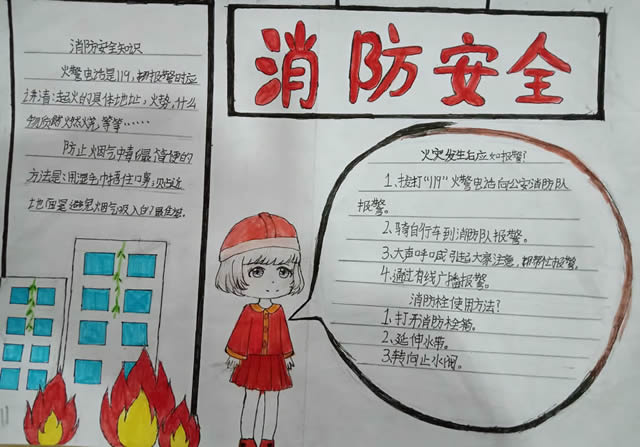 消防安全
消防安全知识
火警电话是119，打报警时应
讲清:起火的具体地址,火势,什么
物质燃烧,等等……
防止烟气中毒最简便的
方法是:用湿毛巾捂住口鼻,贴近
地面是避免烟气吸入的最佳
火灾发生后应如报警?
1、拨打"119"火警电话向公安消防队
报警。
2、骑自行车到消防队报警。
3、大声呼喊引起大家注意,帮忙报警。
4、通过有线广播报警。
消防栓使用方法?
1、打开消防栓箱。
2、延伸水带。
3、转向止水阀。